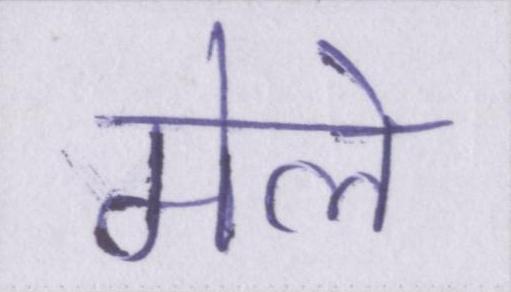 मेले